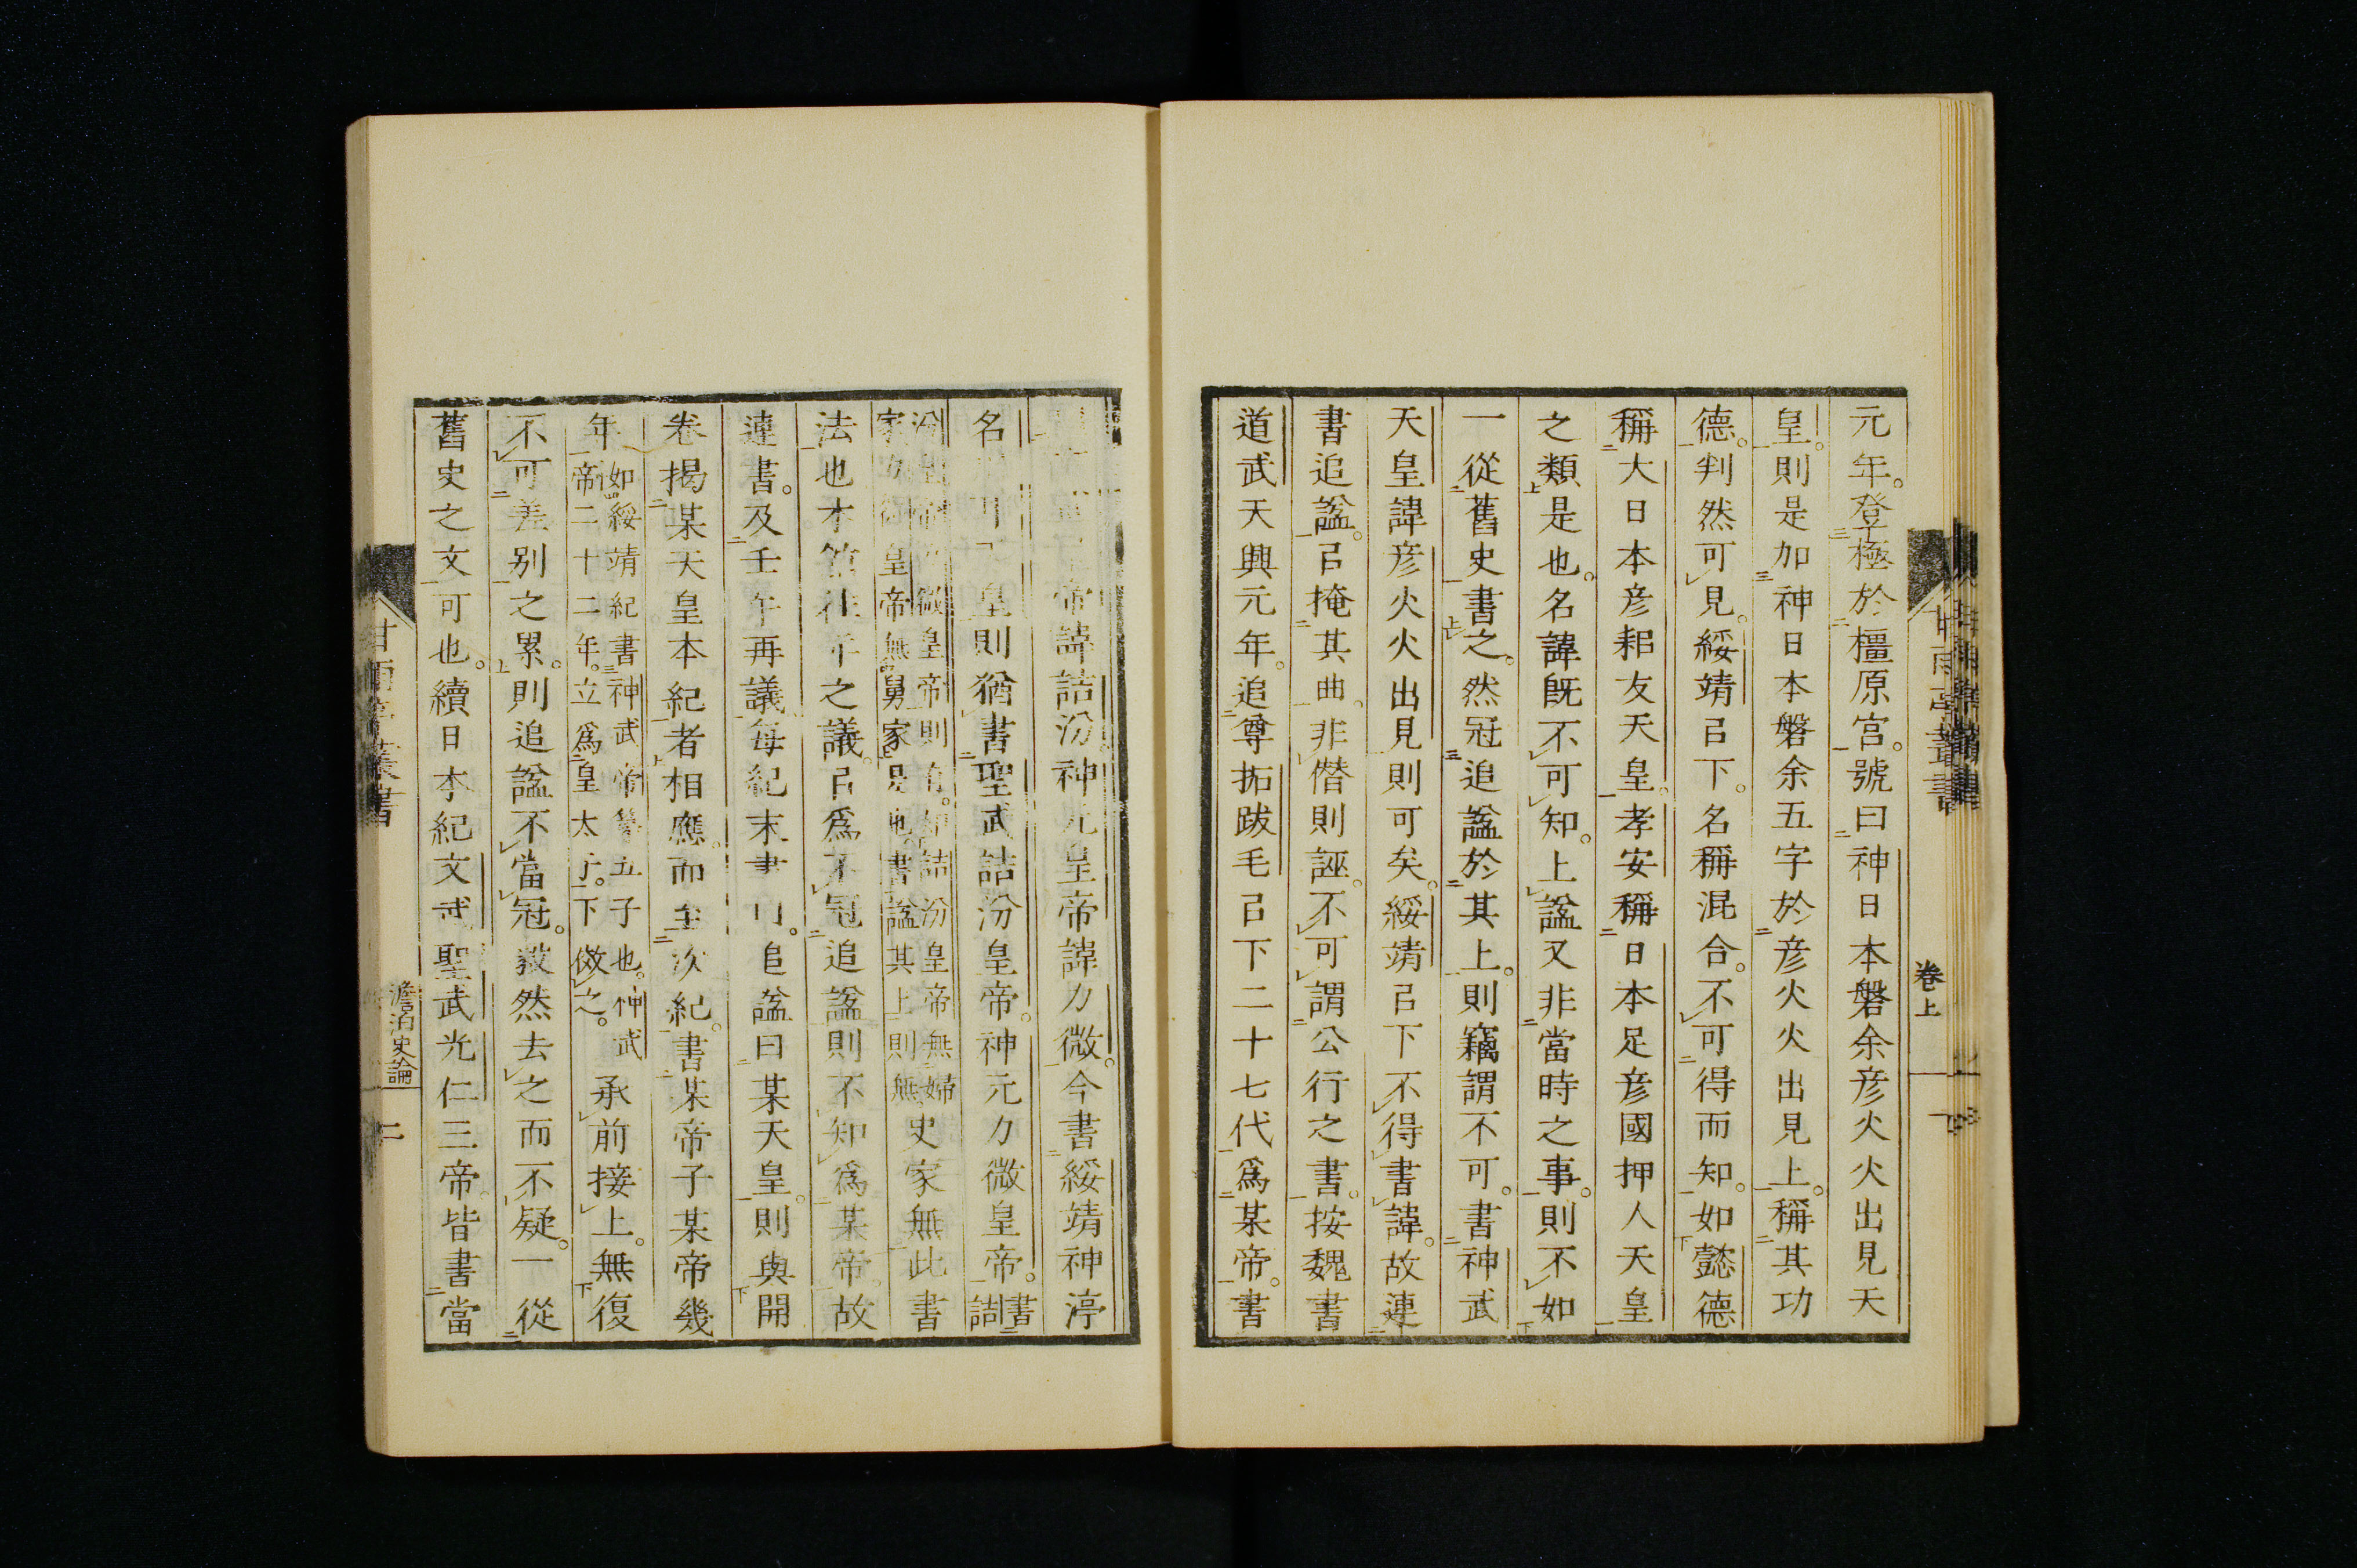 元年。登極於橿原宮。號曰神日本磐余彦火火出見天
皇。則是加神日本磐余五字於彦火火出見上。稱其功
德。判然可見。綏靖㠯下。名稱混合。不可得而知。如懿德
稱大日本彦耜友天皇。孝安稱日本足彦國押人天皇
之類是也。名諱旣不可知。上諡又非當時之事。則不如
一從舊史書之。然冠追諡於其上。則竊謂不可。書神武
天皇諱彦火火出見則可矣。綏靖㠯下不得書諱。故連
書追諡。㠯掩其曲。非僭則誣。不可謂公行之書。按魏書
道武天興元年。追尊拓跋毛㠯下二十七代爲某帝。書
卷上
帝諱詰汾。神元皇帝諱力微。今書綏靖神渟
名川 皇則猶書聖武詰汾皇帝。神元力微皇帝。書詰
汾皇帝 微皇帝則 詰汾皇帝無婦
家力微皇帝無舅家是也。書諡其上則無史家無此書
法也本 之議。㠯爲不冠追諡則不知爲某帝。故
連書。及壬午再議每紀末書 追諡曰某天皇。則與開
卷揭某天皇本紀者相應。而至次紀。書某帝子某帝幾
年如綏靖紀書神武帝第五子也。神武
帝二十二年。立爲皇太子。下倣之。承前接上。無復
不可差别之累。則追諡不當冠。毅然去之而不疑。一從
舊史之文可也。續日本紀文武聖武光仁三帝。皆書當
甘雨亭叢書
澹泊史論
二